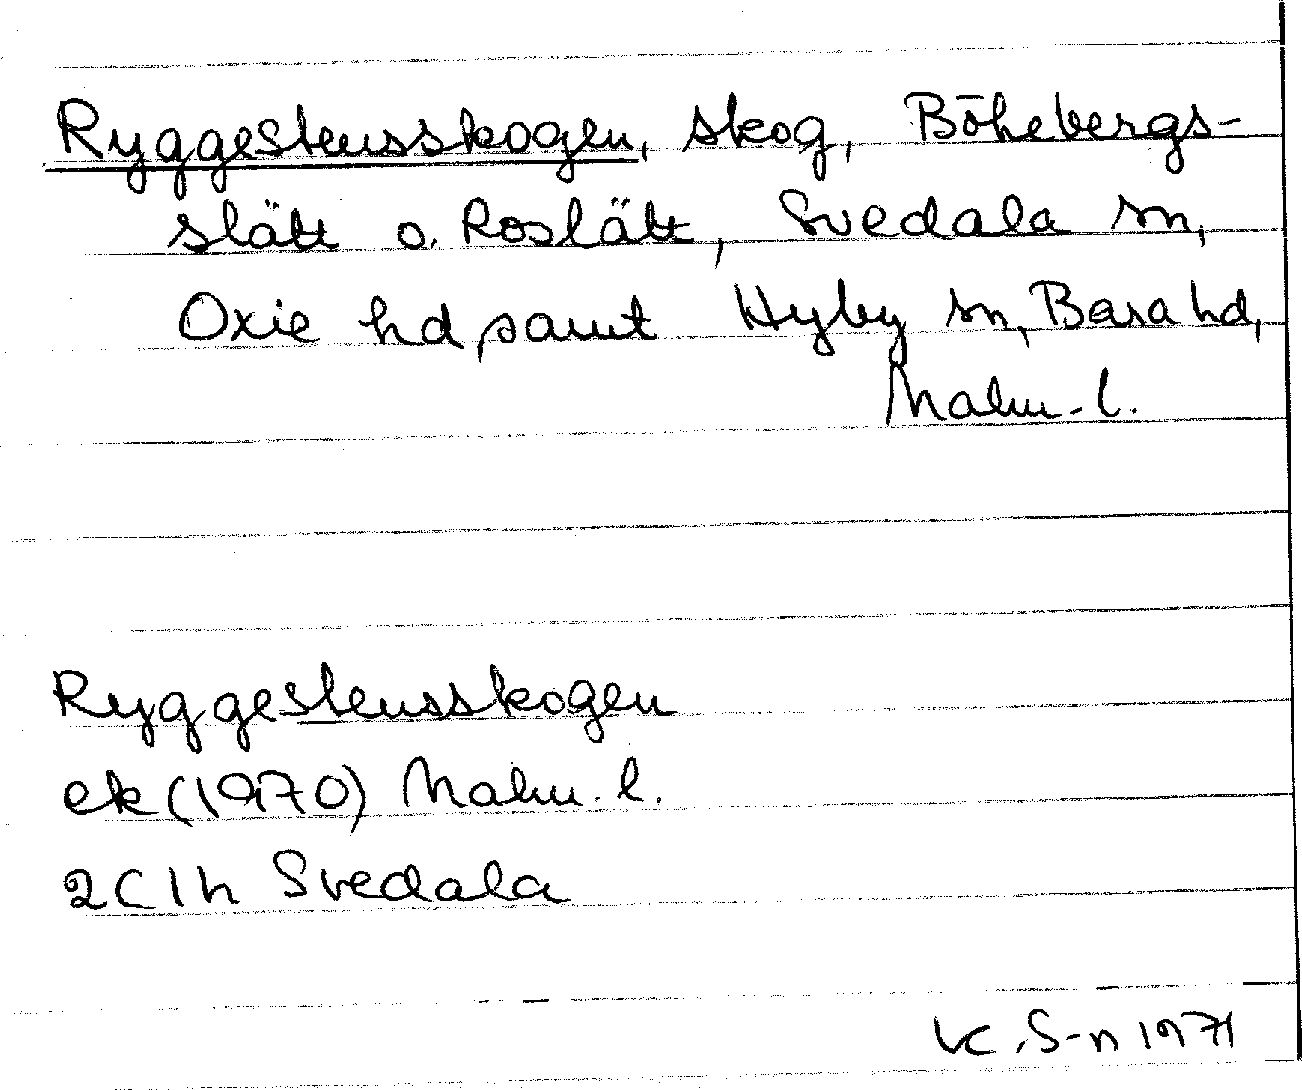 Ryggestensskogen, skog, Bökebergs-
slätt o. Roslätt, Svedala sn,
Oxie hd samt Hyby sn, Bara hd,
Malm. l.
Ryggestensskogen
ek (1970) Malm. l.
2C1h Svedala
K.S-n 1971